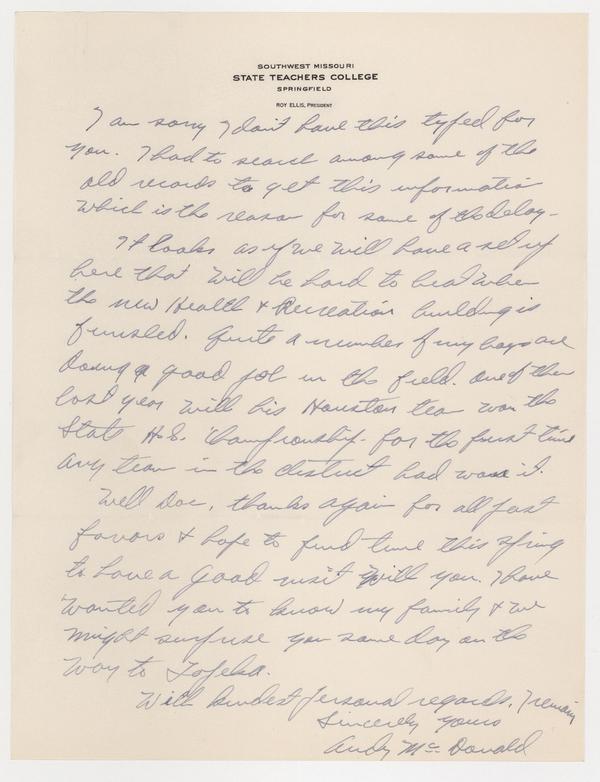 SOUTHWEST MISSOURI
STATE TEACHERS COLLEGE
SPRINGFIELD
ROY ELLIS, PRESIDENT
I am sorry I don't have this typed for
you. I had to search among some of the
old records to get this information
which is the reason for some of the delay -
It looks as if we will have a set up
here that will be hard to beat when
the new Health & Recreation building is
finished. Quite a number of my boys are
doing a good job in the field. One of them
last year with his Houston team won the
State H.S. Championship - for the first time
any team in the district had won it.
Well Doc, thanks again for all past
favors & hope to find time this spring
to have a good visit with you. I have
wanted you to know my family & we
might surprise you some day on the
way to Topeka.
With kindest personal regards, I remain
Sincerely yours
Andy McDonald